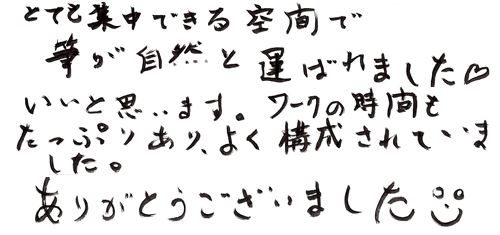 とても集中できる空間で
筆が自然と運ばれました♡
いいと思います。ワークの時間も
たっぷりあり、よく構成されていま
した。
ありがとうございました☺